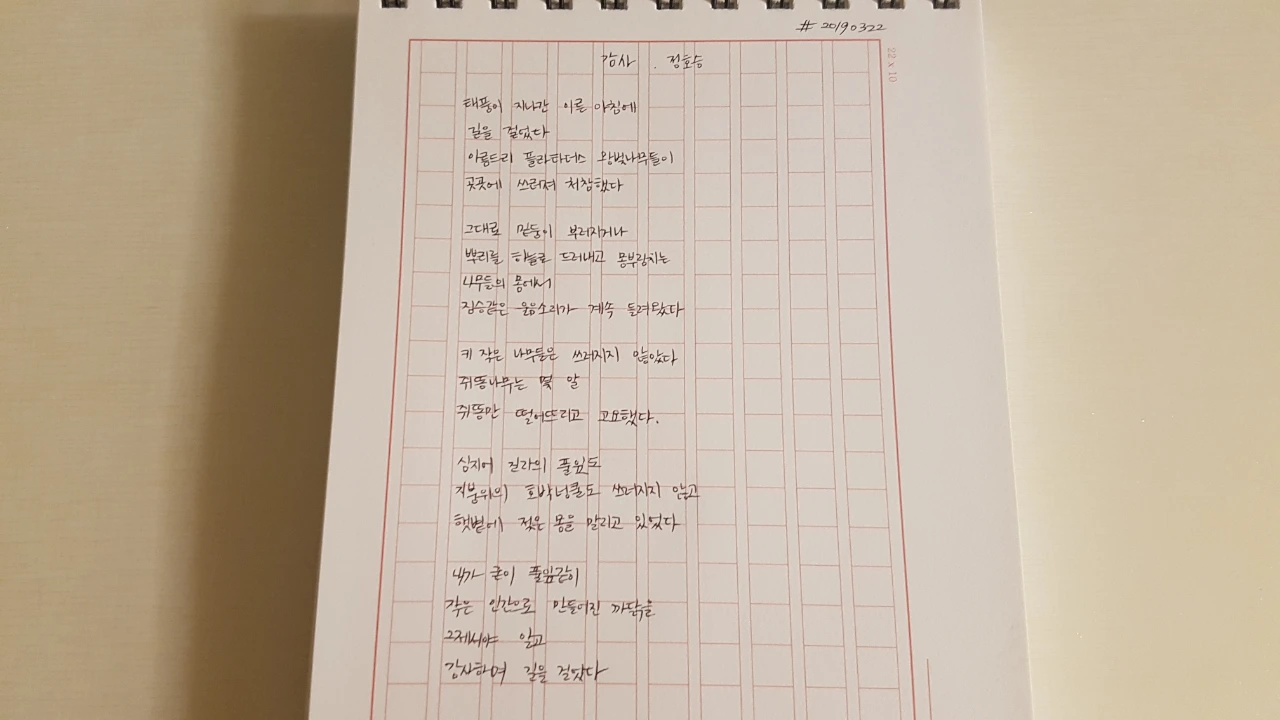 # 20190322
22 x 10
감사 . 정호승
태풍이 지나간 이른 아침에
길을 걸었다
아름드리 플라타너스 왕벚나무들이
곳곳에 쓰러져 처참했다
그대로 밑둥이 부러지거나
뿌리를 하늘로 드러내고 몸부림치는
나무들의 몸에서
짐승같은 울음소리가 계속 들려왔다
키 작은 나무들은 쓰러지지 않았다
쥐똥나무는 몇 알
쥐똥만 떨어뜨리고 고요했다.
심지어 길가의 풀잎도
지붕위의 호박넝쿨도 쓰러지지 않고
햇볕에 젖은 몸을 말리고 있었다
내가 굳이 풀잎같이
작은 인간으로 만들어진 까닭을
그제서야 알고
감사하며 길을 걸었다